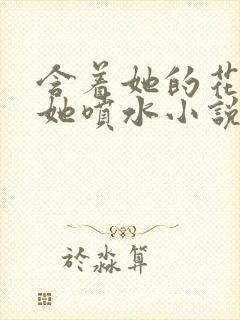 含着她的花
她喷水小说
於淼算